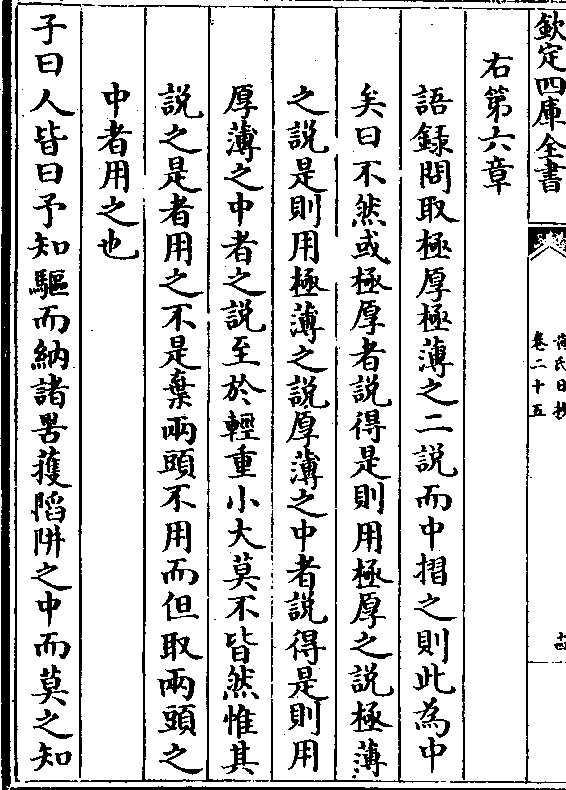 欽定四庫全書
黄氏日抄
卷二十五
十四
右第六章
語録問取極厚極薄之二説而中摺之則此為中
矣曰不然或極厚者説得是則用極厚之説極薄
之説是則用極薄之説厚薄之中者説得是則用
厚薄之中者之説至於輕重小大莫不皆然惟其
説之是者用之不是棄兩頭不用而但取兩頭之
中者用之也
子曰人皆曰予知驅而納諸罟擭陷阱之中而莫之知